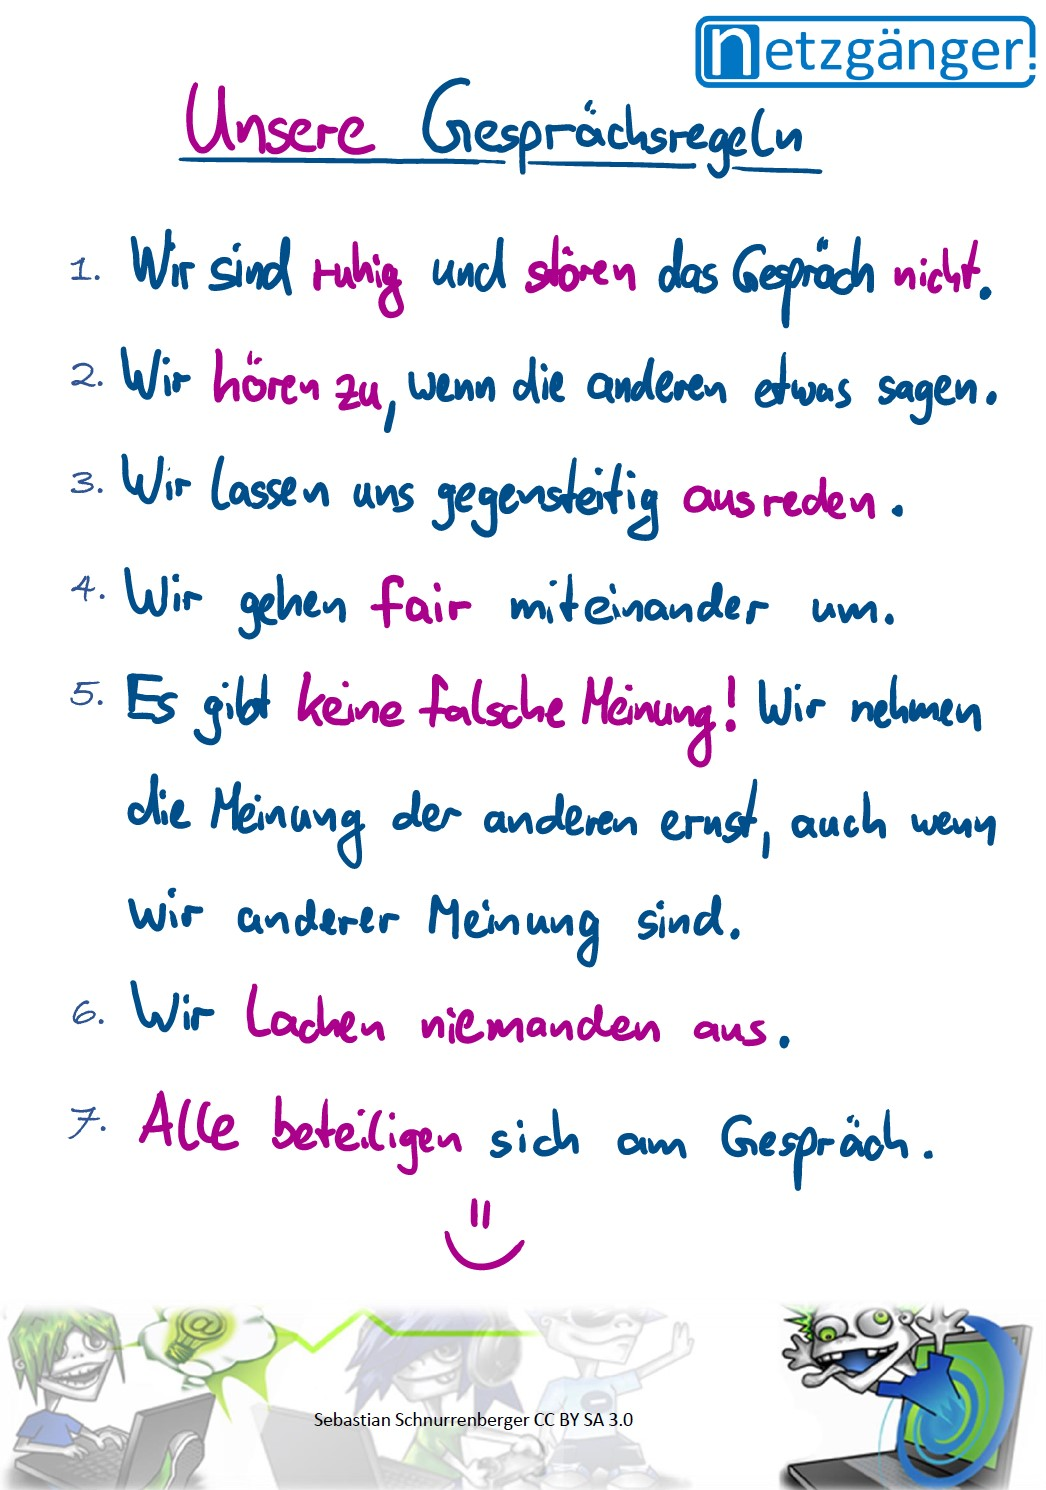 netzgänger!
Unsere Gesprächsregeln
1. Wir sind ruhig und stören das Gespräch nicht.
2. Wir hören zu, wenn die anderen etwas sagen.
3. Wir lassen uns gegensteitig ausreden.
4. Wir gehen fair miteinander um.
5. Es gibt keine falsche Meinung! Wir nehmen
die Meinung der anderen ernst, auch wenn
wir anderer Meinung sind.
6. Wir Lachen niemanden aus.
7. Alle beteiligen sich am Gespräch.
@
Sebastian Schnurrenberger CC BY SA 3.0